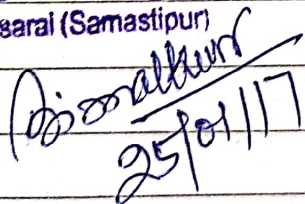 sarai (Samastipur)
25/01/17